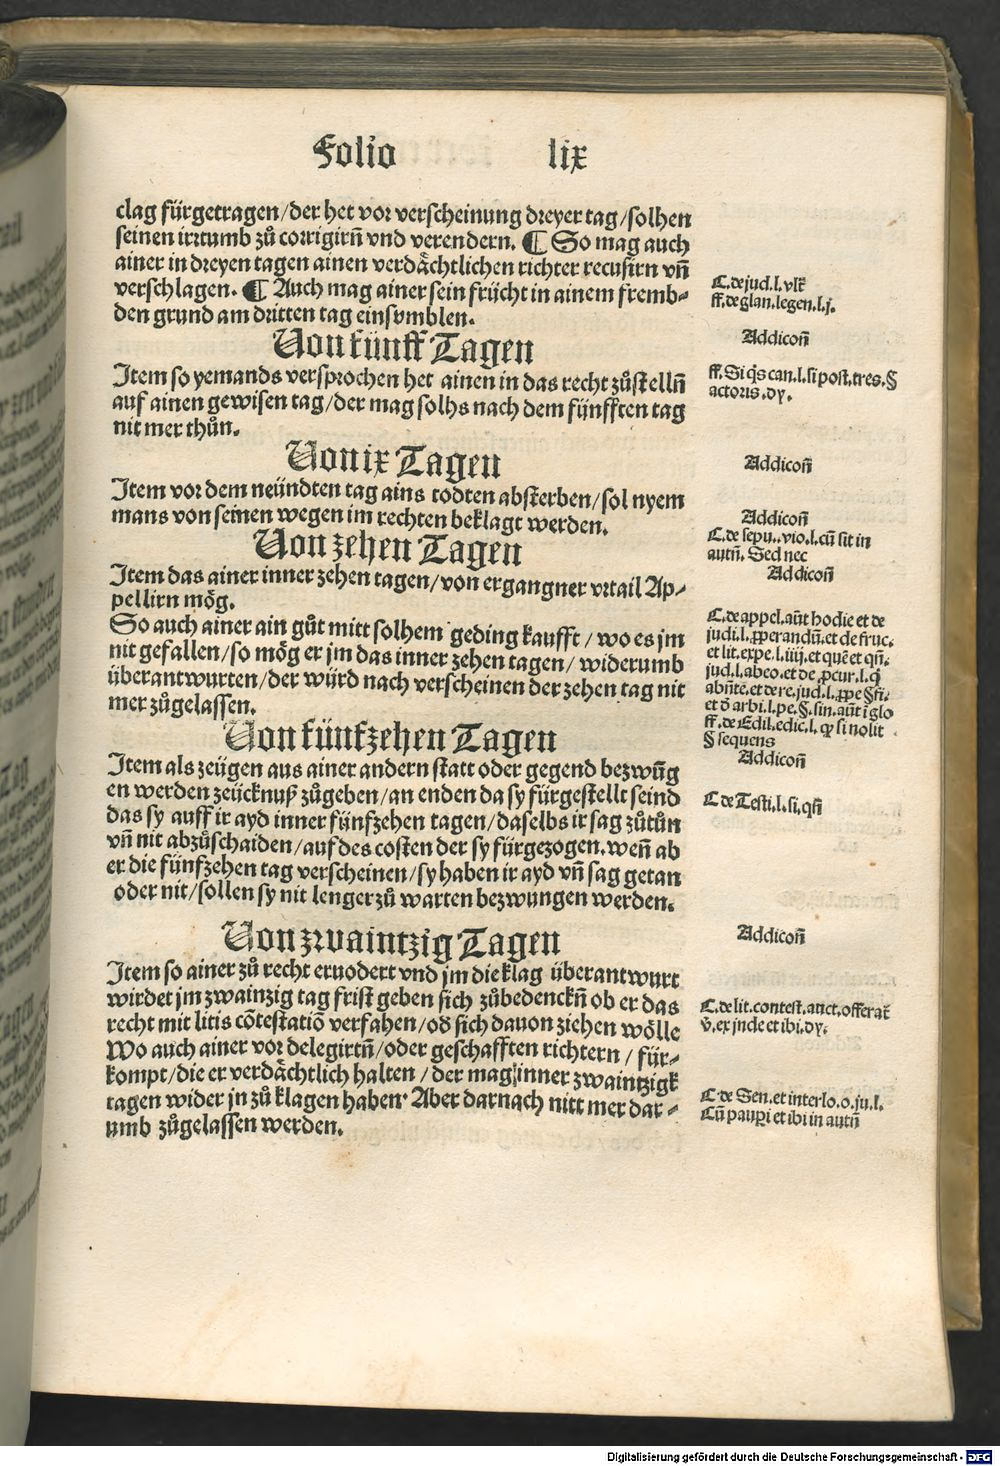 Folio lix
clag fürgetragen/der het vor verscheinung dreyer tag/solhen
seinen irrtumb zů corrigirn̄ vnd verendern. ¶ So mag auch
ainer in dreyen tagen ainen verdächtlichen richter recusirn vn̄
verschlagen. ¶ Auch mag ainer sein frücht in ainem fremb⸗
den grund am dritten tag einsamblen.
C. de jud. l. vlt̄
ff. de glan. legen. l. j.
Addicon̄
Von fünff Tagen
Item so yemands versprochen het ainen in das recht zůstelln̄
auf ainen gewisen tag/der mag solhs nach dem fünfften tag
nit mer thůn.
ff. Si q̄s can. l. si post. tres. §
actoris. dy.
Addicon̄
Von ix Tagen
Item vor dem neündten tag ains todten absterben/sol nyem
mans von seinen wegen im rechten beklagt werden.
Addicon̄
C. de sepu.. vio. l. cū sit in
autn̄. Sed nec
Von zehen Tagen
Addicon̄
Item das ainer inner zehen tagen/von ergangner vrtail Ap⸗
pellirn mög.
So auch ainer ain gůt mitt solhem geding kaufft / wo es jm
nit gefallen/so mög er jm das inner zehen tagen/ widerumb
überantwurten/der würd nach verscheinen der zehen tag nit
mer zůgelassen.
C. de appel. aūt hodie et de
judi. l. ꝓperandū. et de fruc.
et lit. expe. l. iiij. et quē et qn̄.
jud. l. abeo. et de ꝓcur. l. q̄
abn̄te. et de re. jud. l. ꝓpe § fi.
et d̄ arbi. l. pe. §. fin. aūt ī glo
ff. de Edil. edic. l. q̄ si nolit
§ sequens
Von fünfzehen Tagen
Addicon̄
Item als zeügen aus ainer andern statt oder gegend bezwūg
en werden zeücknuß zůgeben/an enden da sy fürgestellt seind
das sy auff ir ayd inner fünfzehen tagen/daselbs ir sag zůtůn
vn̄ nit abzůschaiden/auf des costen der sy fürgezogen. wen̄ ab
er die fünfzehen tag verscheinen/sy haben ir ayd vn̄ sag getan
oder nit/sollen sy nit lenger zů warten bezwungen werden.
C de Testi. l. si. qn̄
Von zwaintzig Tagen
Addicon̄
Item so ainer zů recht eruodert vnd jm die klag überantwurt
wirdet jm zwainzig tag frist geben sich zůbedenckn̄ ob er das
recht mit litis cōtestatiō verfahen/od̄ sich dauon ziehen wölle
Wo auch ainer vor delegirtn̄/oder geschafften richtern / für⸗
kompt/die er verdächtlich halten / der mag inner zwaintzigk
tagen wider jn zů klagen haben. Aber darnach nitt mer dar⸗
umb zůgelassen werden.
C. de lit. contest. auct. offerat̄
v̄. ex jnde et ibi. dy.
C de Sen. et interlo. o. ju. l.
Cū pauꝑi et ibi in autn̄
Digitalisierung gefördert durch die Deutsche Forschungsgemeinschaft - DFG